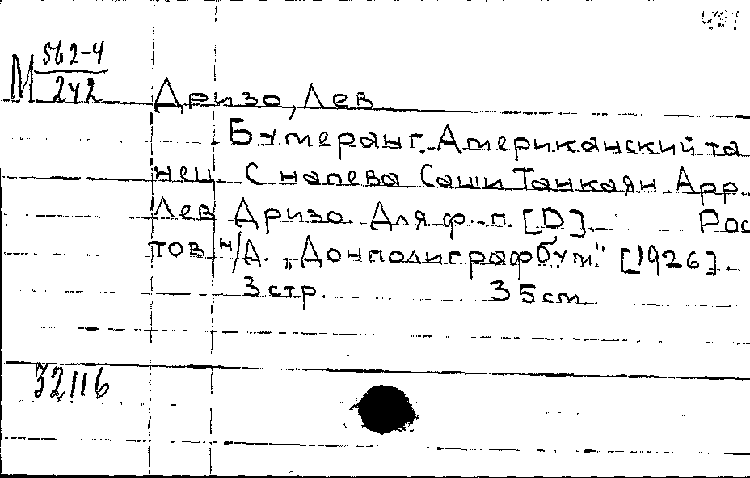 М 562-4
242
Дризо, Лев
Бумеранг. Американский та
нец. С напева Саши Танкаян Арр.
Лев Дризо. Для ф.-п. [D]. Рос
тов н/Д. „Донполиграфбум" [1926].
3 стр. 35 cm
32116